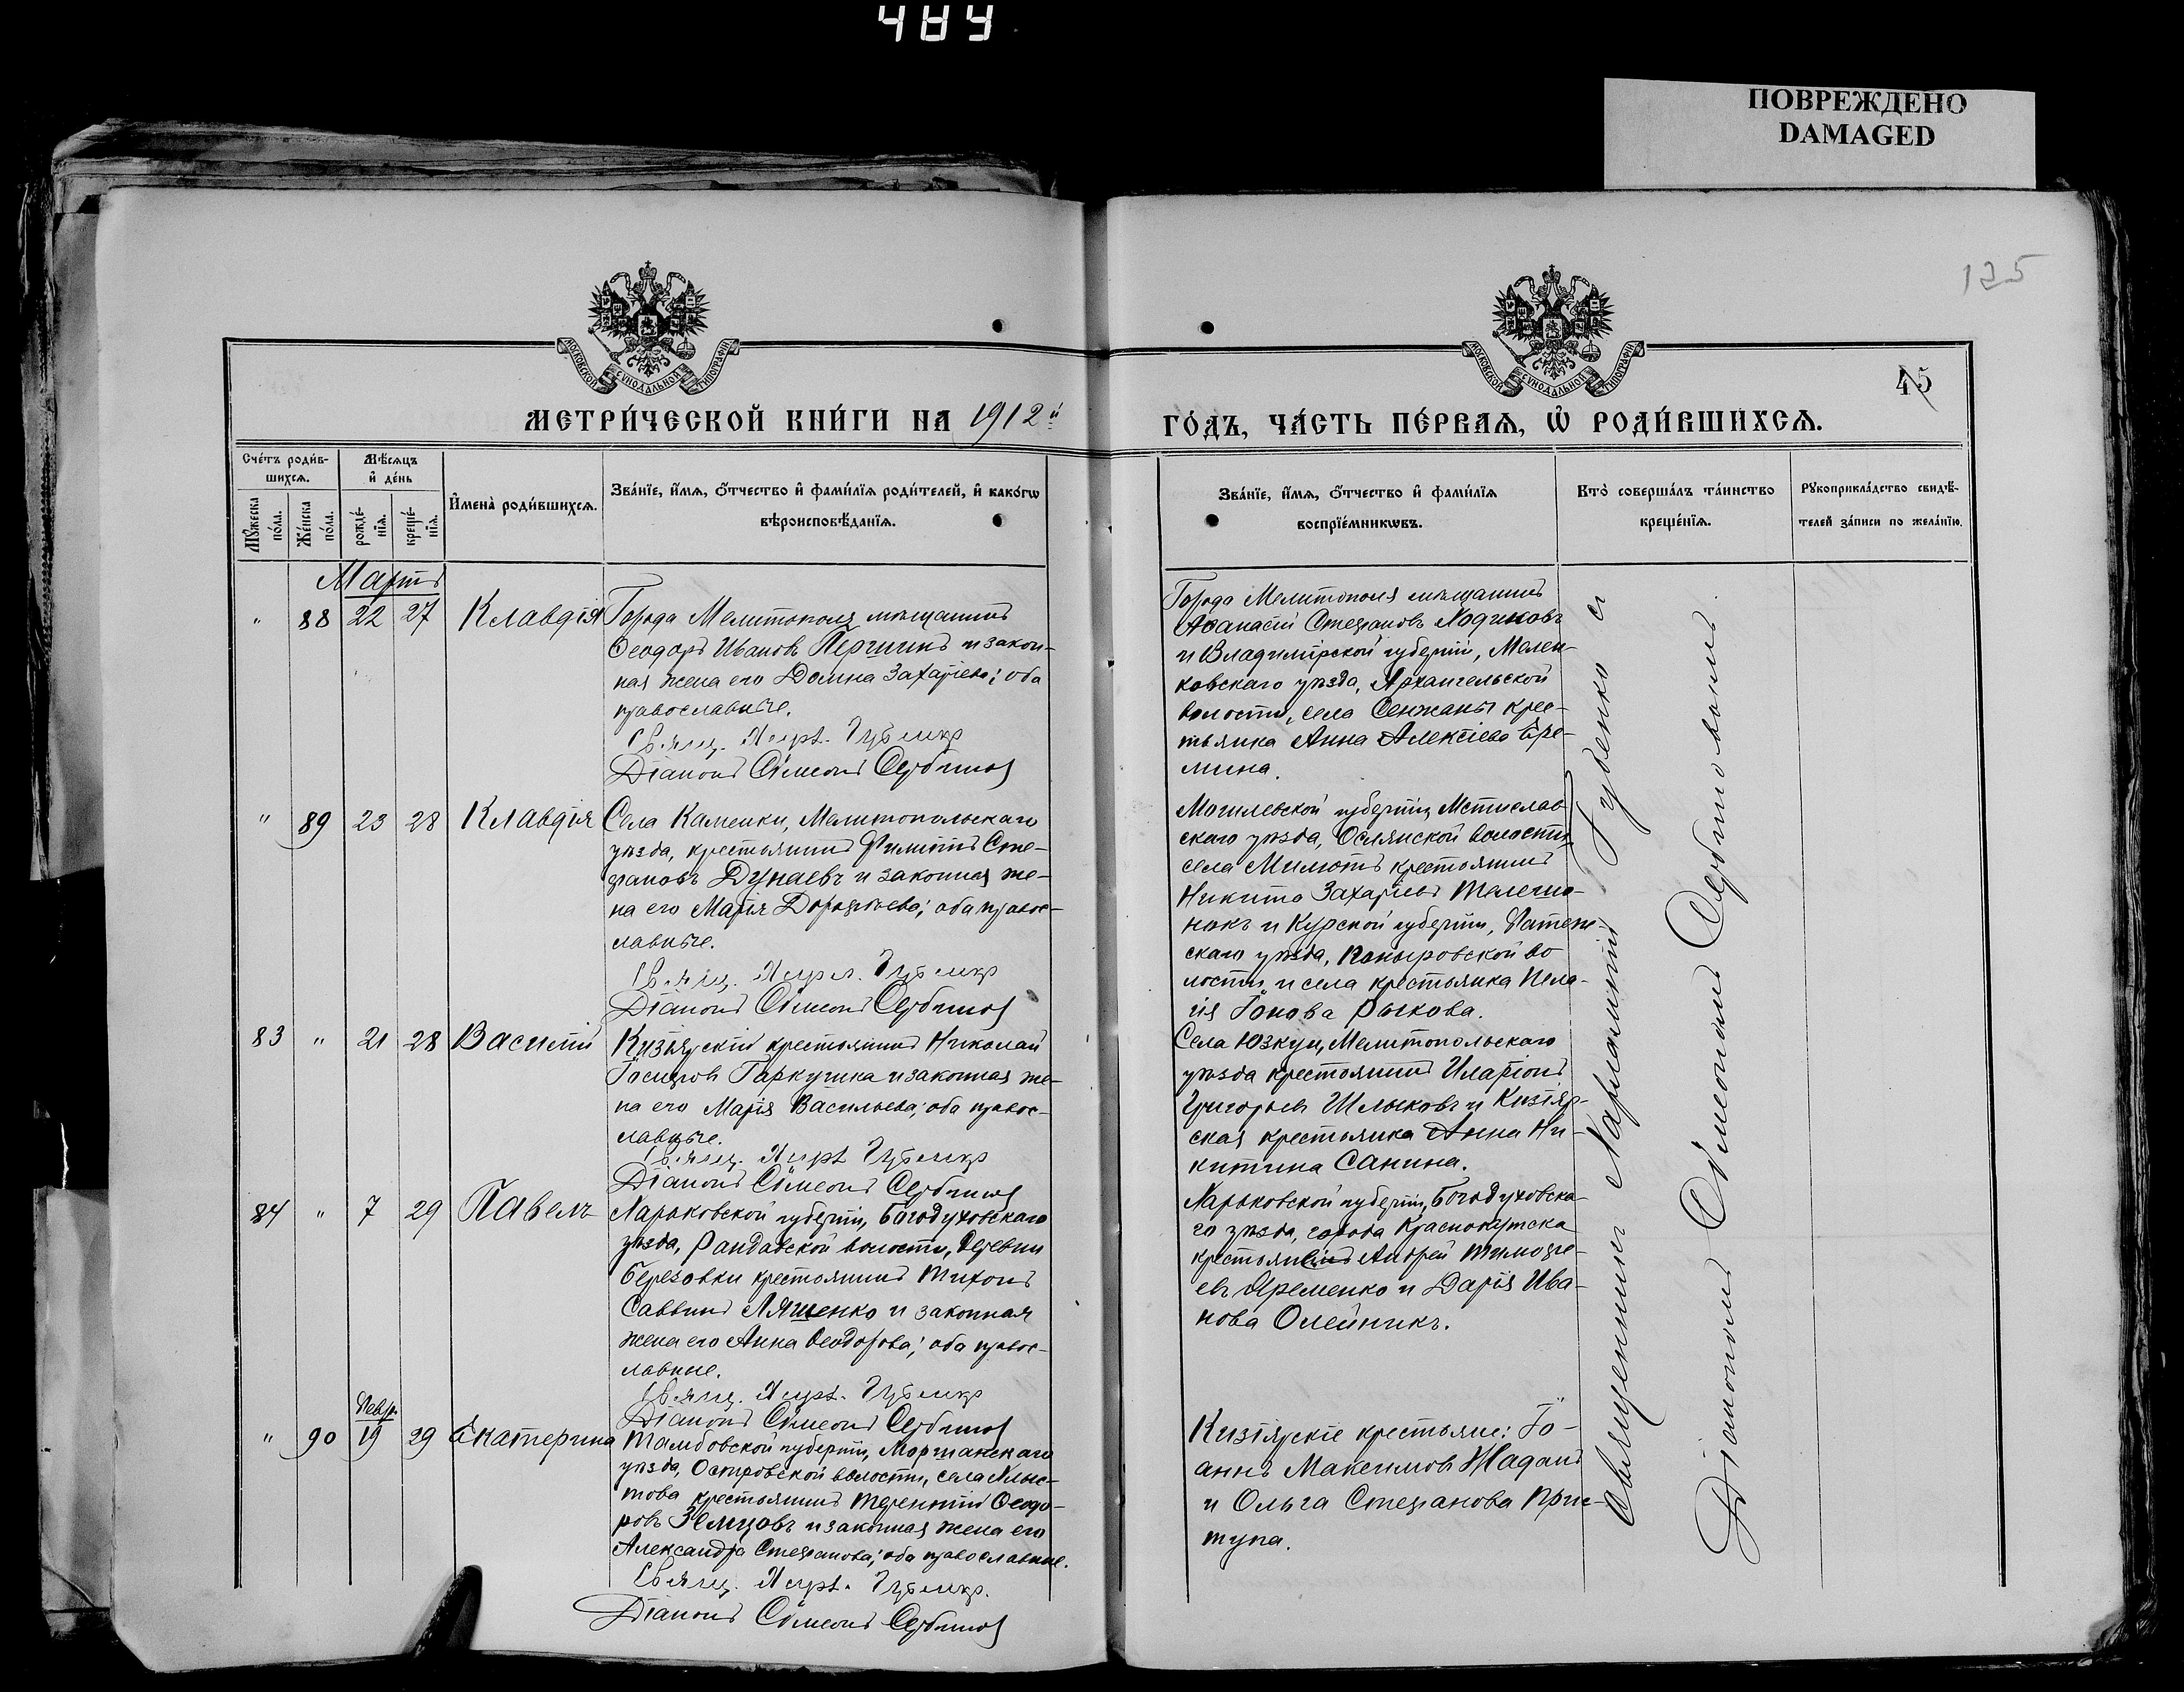 484
ПОВРЕЖДЕНО
DAMAGED
125
45
МОСКОВСКОЙ СѴНОДАЛЬНОЙ ТИПОГРАФІИ
МОСКОВСКОЙ СѴНОДАЛЬНОЙ ТИПОГРАФІИ
МЕТРИ́ЧЕСКОЙ КНИ́ГИ НА 1912й
ГО́ДЪ, ЧА́СТЬ ПЕ́РВАѦ, Ѡ҆ РОДИ́ВШИХСѦ.
Сче́тъ роди́в-
шихсѧ.
Мѣ́сѧцъ
и҆ де́нь
Мꙋ́жеска
по́ла.
Же́нска
по́ла.
рожде́-
нїѧ.
креще́-
нїѧ.
И҆мена̀ роди́вшихсѧ.
Зва́нїе, и҆́мѧ, ѻ҆́тчество и҆ фами́лїѧ роди́телей, и҆ како́гѡ
вѣроисповѣ́данїѧ.
Зва́нїе, и҆́мѧ, ѻ҆́тчество и҆ фами́лїѧ
воспрїе́мникѡвъ.
Кто̀ соверша́лъ та́инство
креще́нїѧ.
Рꙋкоприкла́дство свидѣ́-
телей за́писи по жела́нїю.
Мартъ
" 88 22 27 Клавдія
Города Мелитополя мѣщанинъ
Ѳеодоръ Ивановъ Першинъ и закон-
ная жена его Домна Захаріева; оба
православные.
Свящ. Харл. Губенко
Діаконъ Сѵмеонъ
Города Мелитополя мѣщанинъ
Аѳанасій Стефановъ Ходиковъ
и Владимірской губерніи, Мелен-
ковскаго уѣзда, Архангельской
волости, села Сенжаны крес-
тьянка Анна Алексіева Ере-
мина.
" 89 23 28 Клавдія
Села Каменки, Мелитопольскаго
уѣзда, крестьянинъ Филиппъ Сте-
фановъ Дунаевъ и законная же-
на его Марія Дороѳеева; оба правос-
лавные.
Свящ. Харл. Губенко
Діаконъ Сѵмеонъ
Могилевской губерніи, Мстислав-
скаго уѣзда, Ослянской волости,
села Милютъ крестьянинъ
Никита Захаріевъ
и Курской губерніи, Фатеж-
скаго уѣзда, Поныровской во
лости и села крестьянка Пела-
гія Іонова Рыкова.
83 " 21 28 Василій
Кизіярскій крестьянинъ Николай
Іосифовъ Гаркушка и законная же-
на его Марія Васильева; оба правос-
лавные.
Свящ. Харл. Губенко
Діаконъ Сѵмеонъ
Села Юзкуи, Мелитопольскаго
уѣзда крестьянинъ Иларіонъ
Григорьевъ Шлыковъ и Кизіяр-
ская крестьянка Анна Ни-
китина Санина.
84 " 7 29 Павелъ
Харьковской губерніи, Богодуховскаго
уѣзда, волости, деревни
Березовки крестьянинъ Тихонъ
Саввинъ Ляшенко и законная
жена его Анна Ѳеодорова; оба правос-
лавные.
Свящ. Харл. Губенко
Діаконъ Сѵмеонъ
Харьковской губерніи, Богодуховска-
го уѣзда, города Краснокутска
крестьянинъ Андрей Тимоѳе-
евъ Яременко и Дарія Ива-
нова Олейникъ.
" 90 Февр. 19 29 Екатерина
Тамбовской губерніи, Моршанскаго
уѣзда, Островской волости, села Алгас-
това крестьянинъ Терентій Ѳеодо-
ровъ Земцовъ и законная жена его
Александра Стефанова; оба православные.
Свящ. Харл. Губенко.
Діаконъ Сѵмеонъ
Кизіярскіе крестьяне: Іо-
аннъ Максимовъ Жаданъ
и Ольга Стефанова Прис-
тупа.
Священникъ Харлампій Губенко съ
Діакономъ Сѵмеономъ